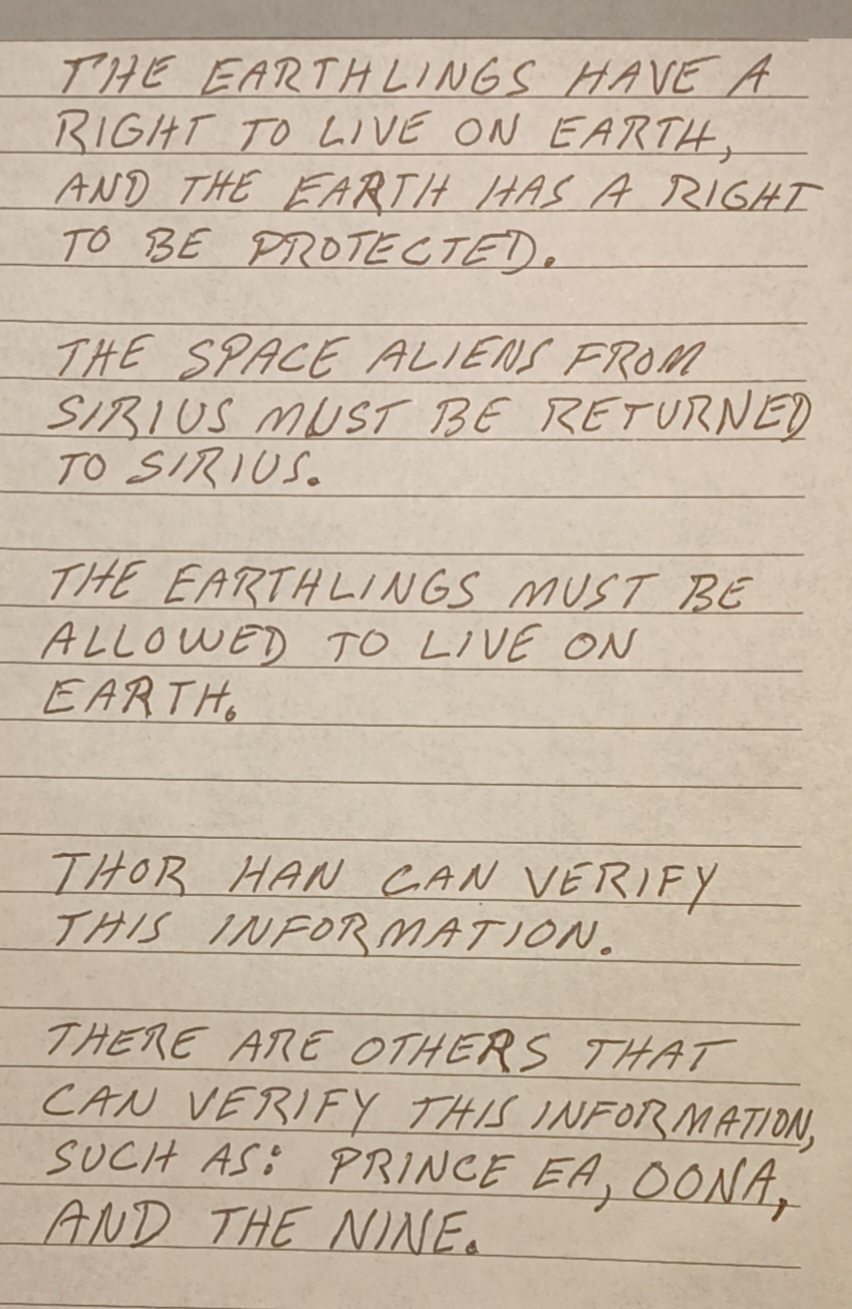 THE EARTHLINGS HAVE A
RIGHT TO LIVE ON EARTH,
AND THE EARTH HAS A RIGHT
TO BE PROTECTED.
THE SPACE ALIENS FROM
SIRIUS MUST BE RETURNED
TO SIRIUS.
THE EARTHLINGS MUST BE
ALLOWED TO LIVE ON
EARTH.
THOR HAN CAN VERIFY
THIS INFORMATION.
THERE ARE OTHERS THAT
CAN VERIFY THIS INFORMATION,
SUCH AS: PRINCE EA, OONA,
AND THE NINE.